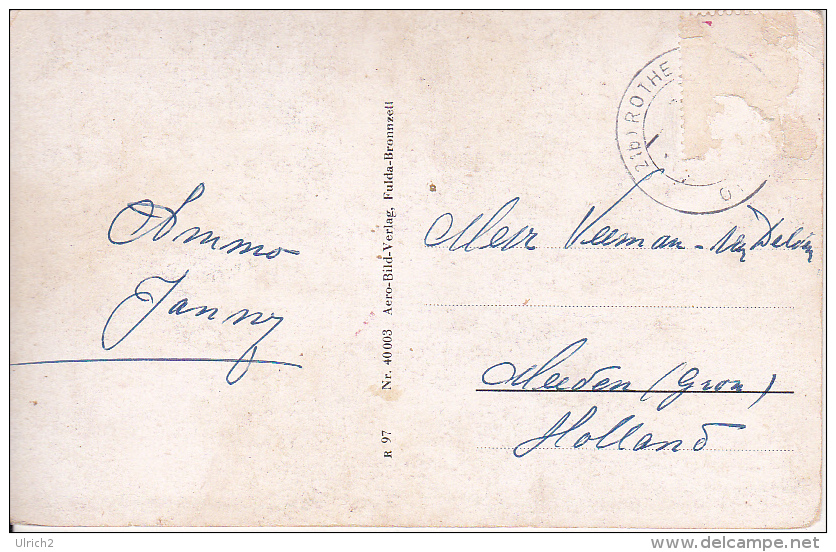 Ammo
Janny
R 97 Nr. 40003 Aero-Bild-Verlag, Fulda-Bronnzell
(21b) ROTHE
Herr Veeman -
Meeden (Gron)
Holland
Ulrich2
delcampe.net